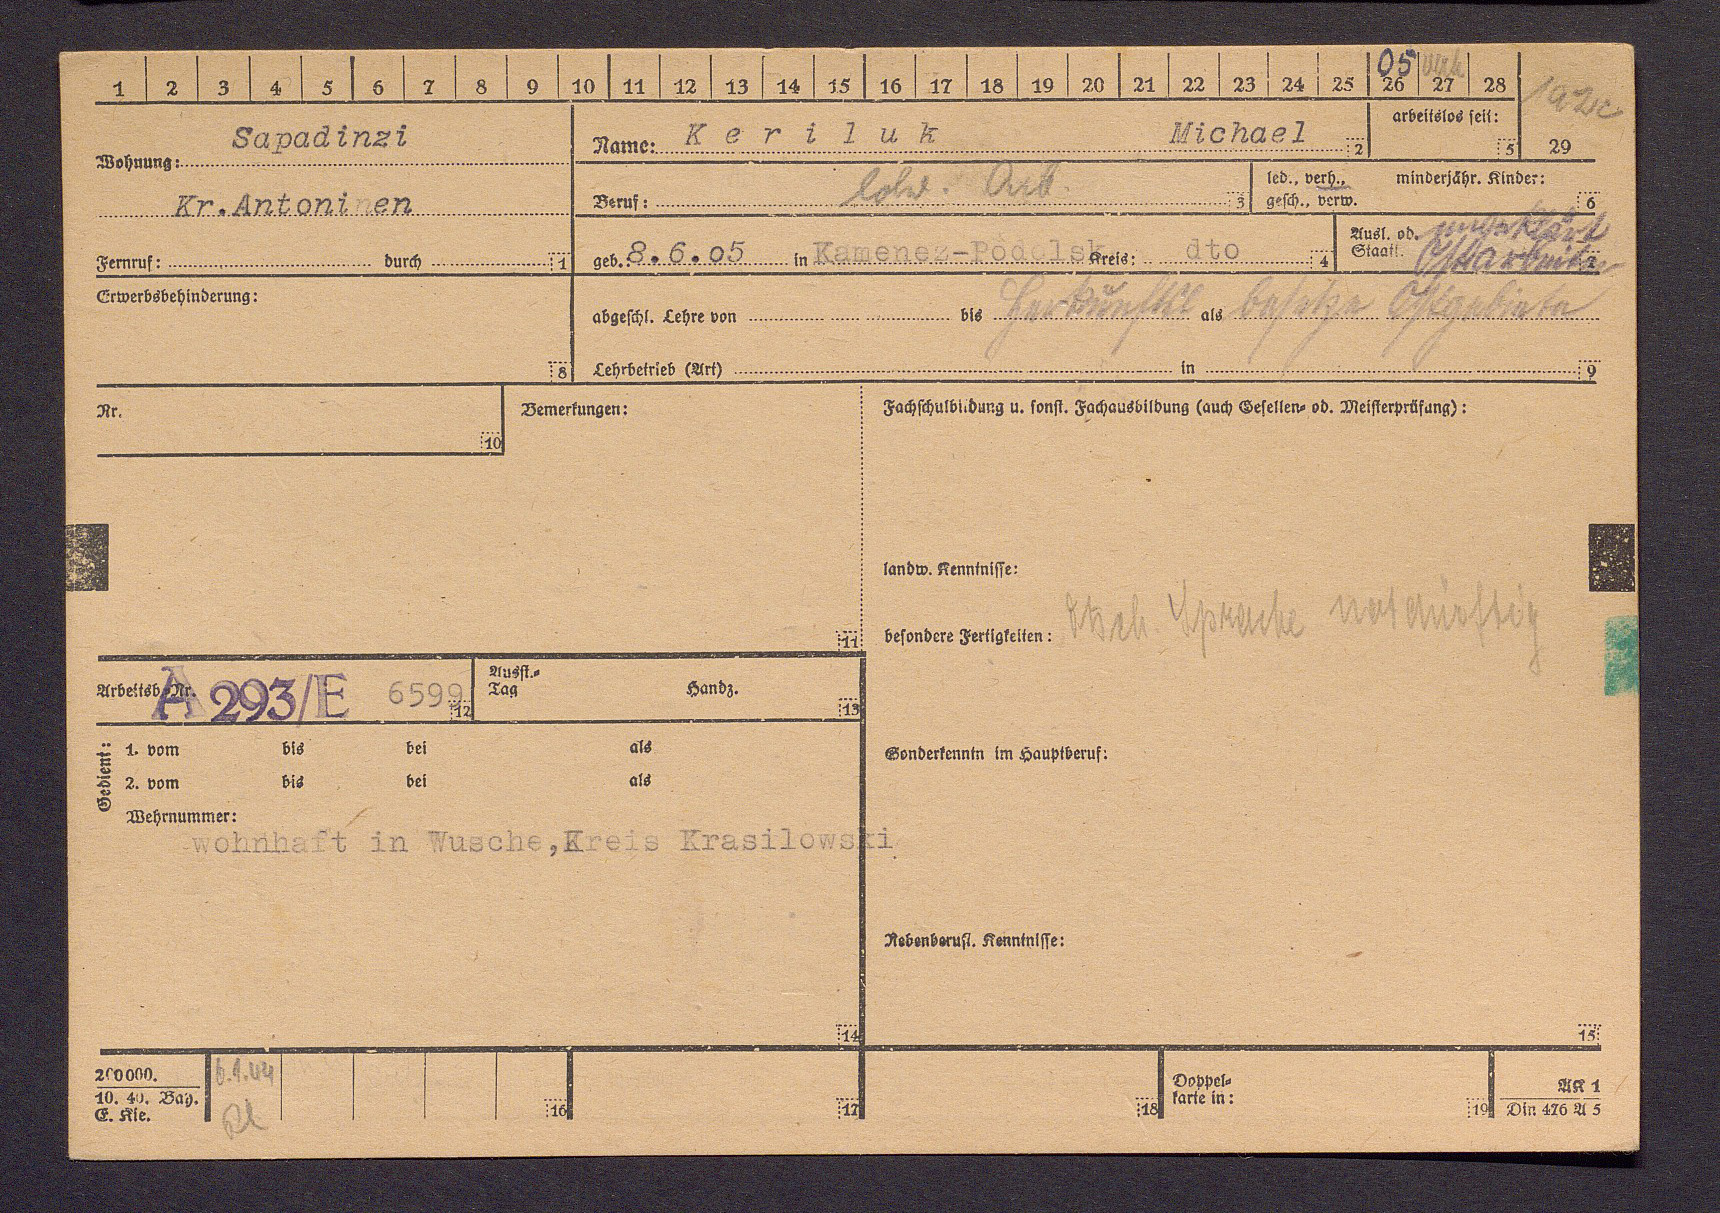 05
1 2 3 4 5 6 7 8 9 10 11 12 13 14 15 16 17 18 19 20 21 22 23 24 25 26 27 28
29
Wohnung: Sapadinzi
Kr.Antoninen
Fernruf: durch 1
Name: Keriluk Michael 2
arbeitslos seit: 5
Beruf: 3
led., verh., gesch., verw.
minderjähr. Kinder: 6
geb.: 8.6.05 in Kamenez-Podolsk Kreis: dto 4
Ausl. od. Staatl. ungeklärt
Ostarbeiter
Erwerbsbehinderung: 8
abgeschl. Lehre von bis als
besetzte Ostgebiete
Lehrbetrieb (Art) in 9
Nr. 10
Bemerkungen: 11
Fachschulbildung u. sonst. Fachausbildung (auch Gesellen- od. Meisterprüfung):
landw. Kenntnisse:
besondere Fertigkeiten: dtsch. Sprache notdürftig
Arbeitsb.-Nr. A 293/E 6599 12
Ausst.-Tag Handz. 13
Gedient:
1. vom bis bei als
2. vom bis bei als
Wehrnummer:
wohnhaft in Wusche,Kreis Krasilowski
14
Sonderkenntn im Hauptberuf:
Nebenberufl. Kenntnisse:
15
200000.
10. 40. Bay.
E. Kle.
6.1.44
16 17 18
Doppel-
karte in: 19
AK 1
Din 476 A 5